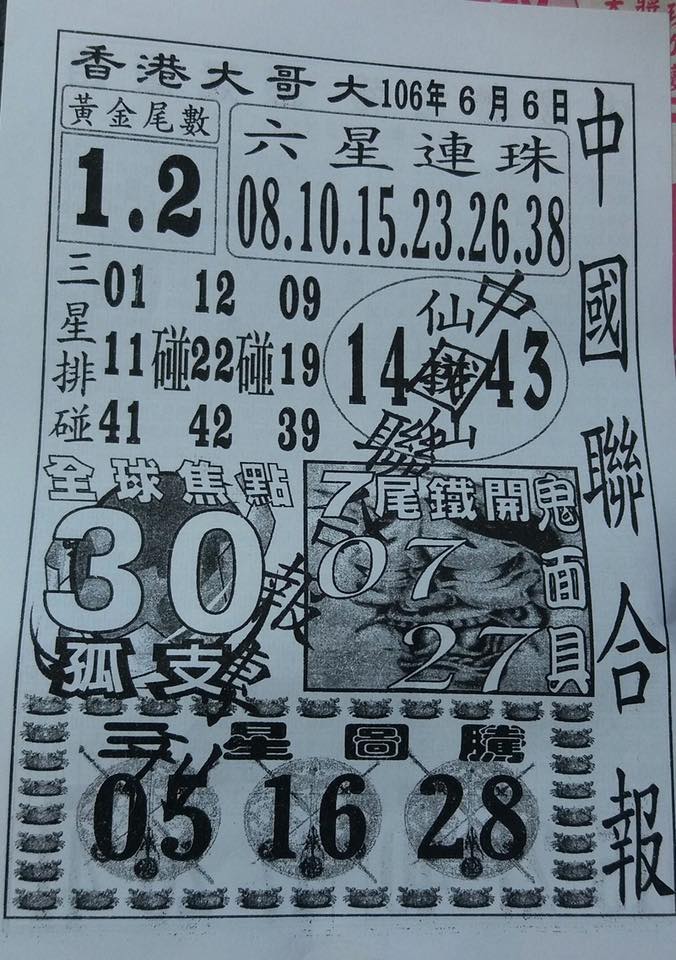 香港大哥大106年6月6日
中國聯合報
黃金尾數
1.2
六星連珠
08.10.15.23.26.38
三星排碰
01 12 09
11碰22碰19
41 42 39
仙
14 43
仙
全球焦點
30
孤支
7尾鐵開
鬼面具
07
27
三星圖騰
05 16 28